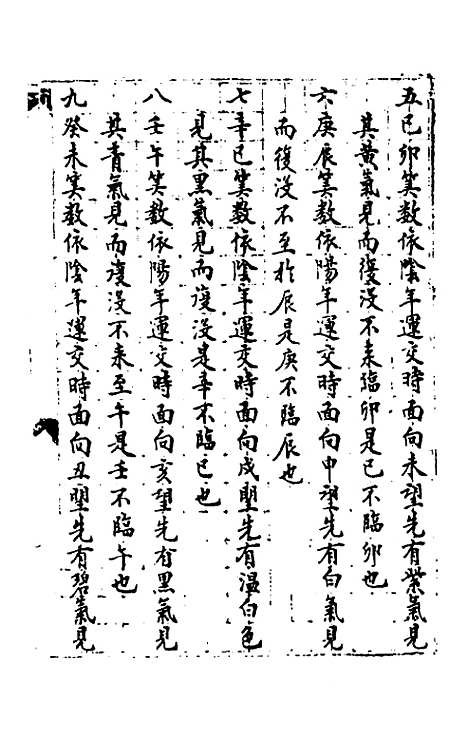 五己卯筭数依陰年運交時面向未望先有紫氣見
其黄氣見而復没不来臨卯是己不臨卯也
六庚辰筭数依陽年運交時面向申望先有白氣見
而復没不至於辰是庚不臨辰也
七辛巳筭数依陰年運交時面向戌望先有温白色
見其黑氣見而復没是辛不臨巳也
八壬午筭数依陽年運交時面向亥望先有黑氣見
其青氣見而復没不来至午是壬不臨午也
九癸未筭数依陰年運交時面向丑望先有碧氣見